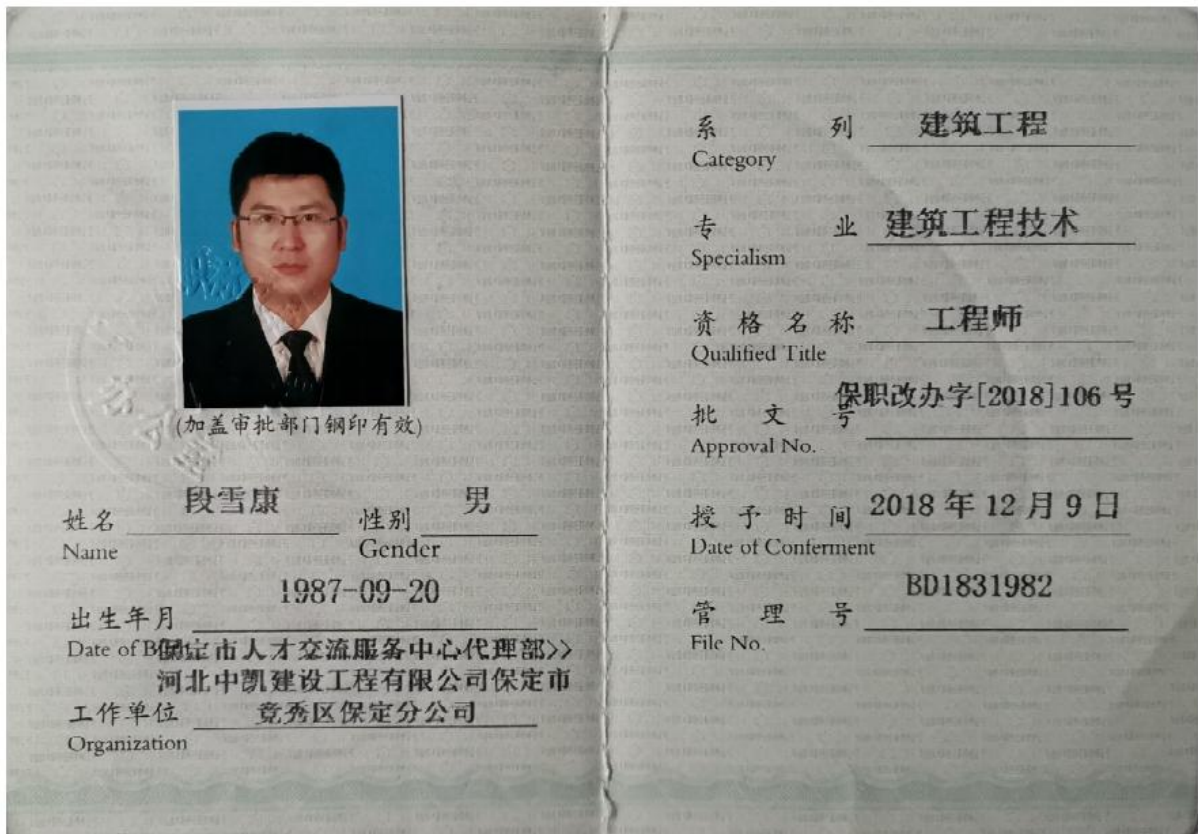 (加盖审批部门钢印有效)
姓名 段雪康 性别 男
Name Gender
出生年月 1987-09-20
Date of Birth
保定市人才交流服务中心代理部>>
河北中凯建设工程有限公司保定市
工作单位 竞秀区保定分公司
Organization
系列 建筑工程
Category
专业 建筑工程技术
Specialism
资格名称 工程师
Qualified Title
批文号 保职改办字[2018]106号
Approval No.
授予时间 2018年12月9日
Date of Conferment
管理号 BD1831982
File No.